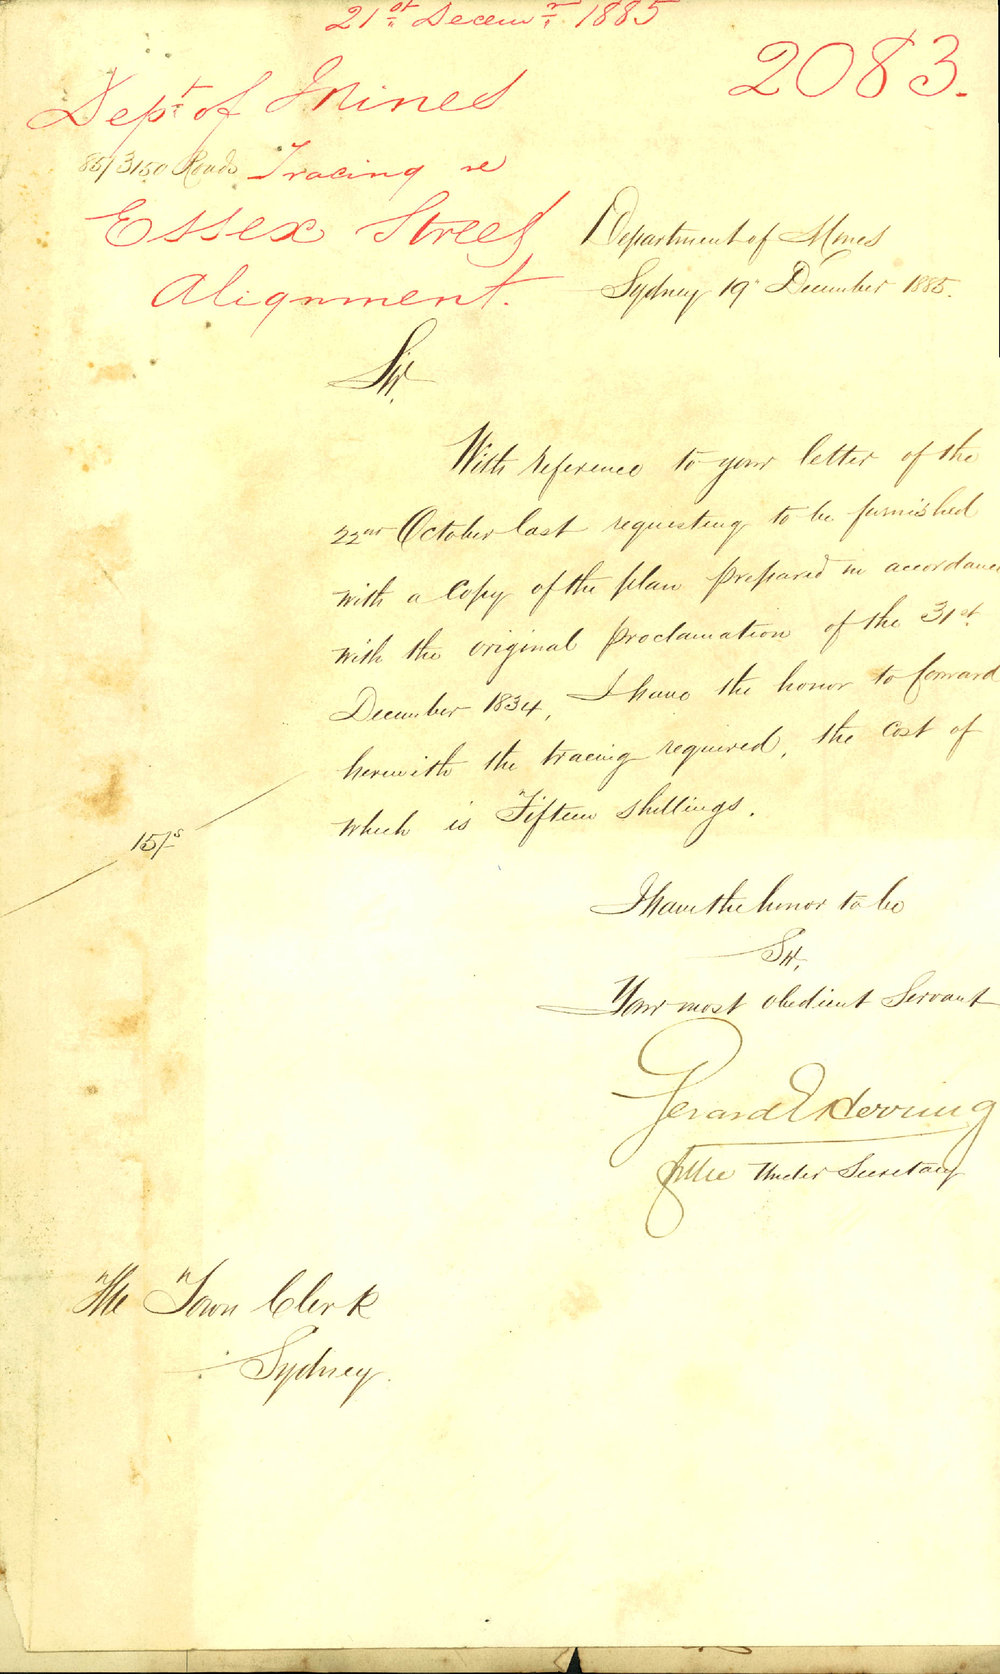 21st Decemr. 1885
2083.
Dept. of Mines
85/3150 Roads Tracing re
Essex Street
Alignment.
Department of Mines
Sydney 19th December 1885.
Sir,
With reference to your letter of the
22nd October last requesting to be furnished
with a copy of the plan prepared in accordance
with the original proclamation of the 31st
December 1834, I have the honor to forward
herewith the tracing required, the cost of
which is Fifteen shillings.
15/s
I have the honor to be
Sir,
Your most obedient Servant
Gerard E Herring
for the Under Secretary
The Town Clerk
Sydney.